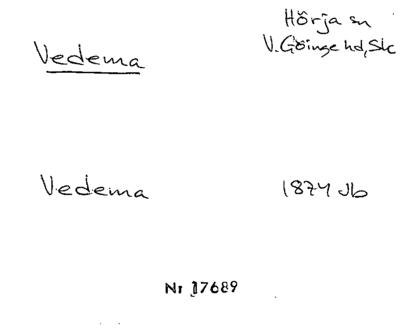 Hörja sn
Vedema
V.Göinge hd, Sk
Vedema
1874 Jb
Nr 17689